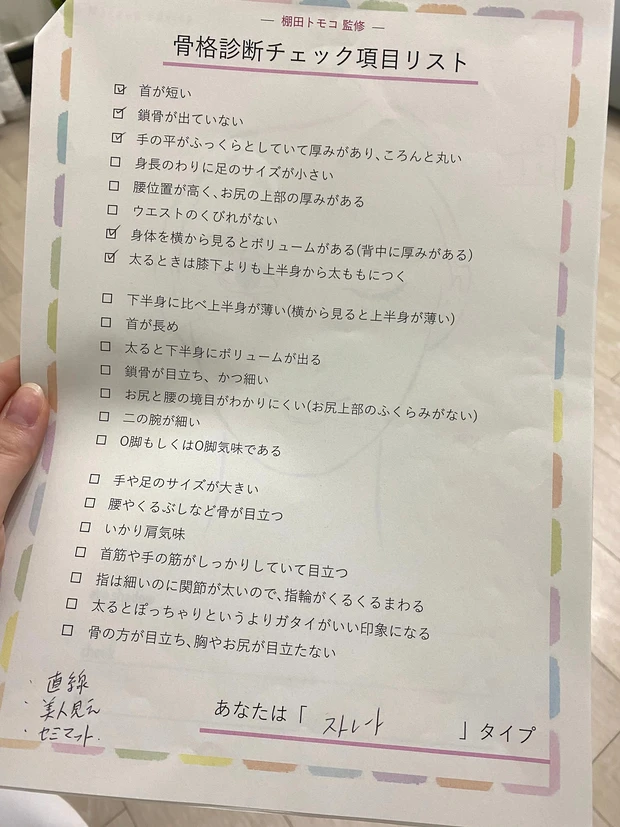 ― 棚田トモコ 監修 ―
骨格診断チェック項目リスト
☑ 首が短い
☑ 鎖骨が出ていない
☑ 手の平がふっくらとしていて厚みがあり、ころんと丸い
☐ 身長のわりに足のサイズが小さい
☐ 腰位置が高く、お尻の上部の厚みがある
☐ ウエストのくびれがない
☑ 身体を横から見るとボリュームがある(背中に厚みがある)
☑ 太るときは膝下よりも上半身から太ももにつく
☐ 下半身に比べ上半身が薄い(横から見ると上半身が薄い)
☐ 首が長め
☐ 太ると下半身にボリュームが出る
☐ 鎖骨が目立ち、かつ細い
☐ お尻と腰の境目がわかりにくい(お尻上部のふくらみがない)
☐ 二の腕が細い
☐ O脚もしくはO脚気味である
☐ 手や足のサイズが大きい
☐ 腰やくるぶしなど骨が目立つ
☐ いかり肩気味
☐ 首筋や手の筋がしっかりしていて目立つ
☐ 指は細いのに関節が太いので、指輪がくるくるまわる
☐ 太るとぽっちゃりというよりガタイがいい印象になる
☐ 骨の方が目立ち、胸やお尻が目立たない
・直線
・美人見え
・セミマット.
あなたは「 ストレート 」タイプ